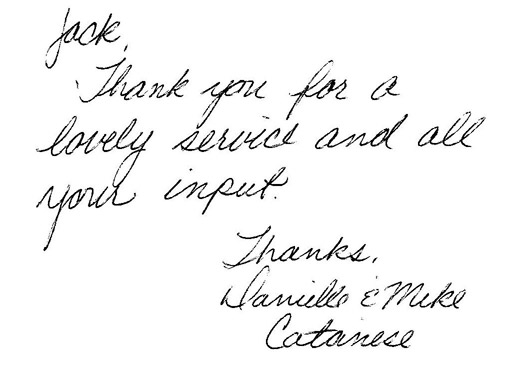 Jack,
Thank you for a
lovely service and all
your input.
Thanks,
Danielle & Mike
Catanese